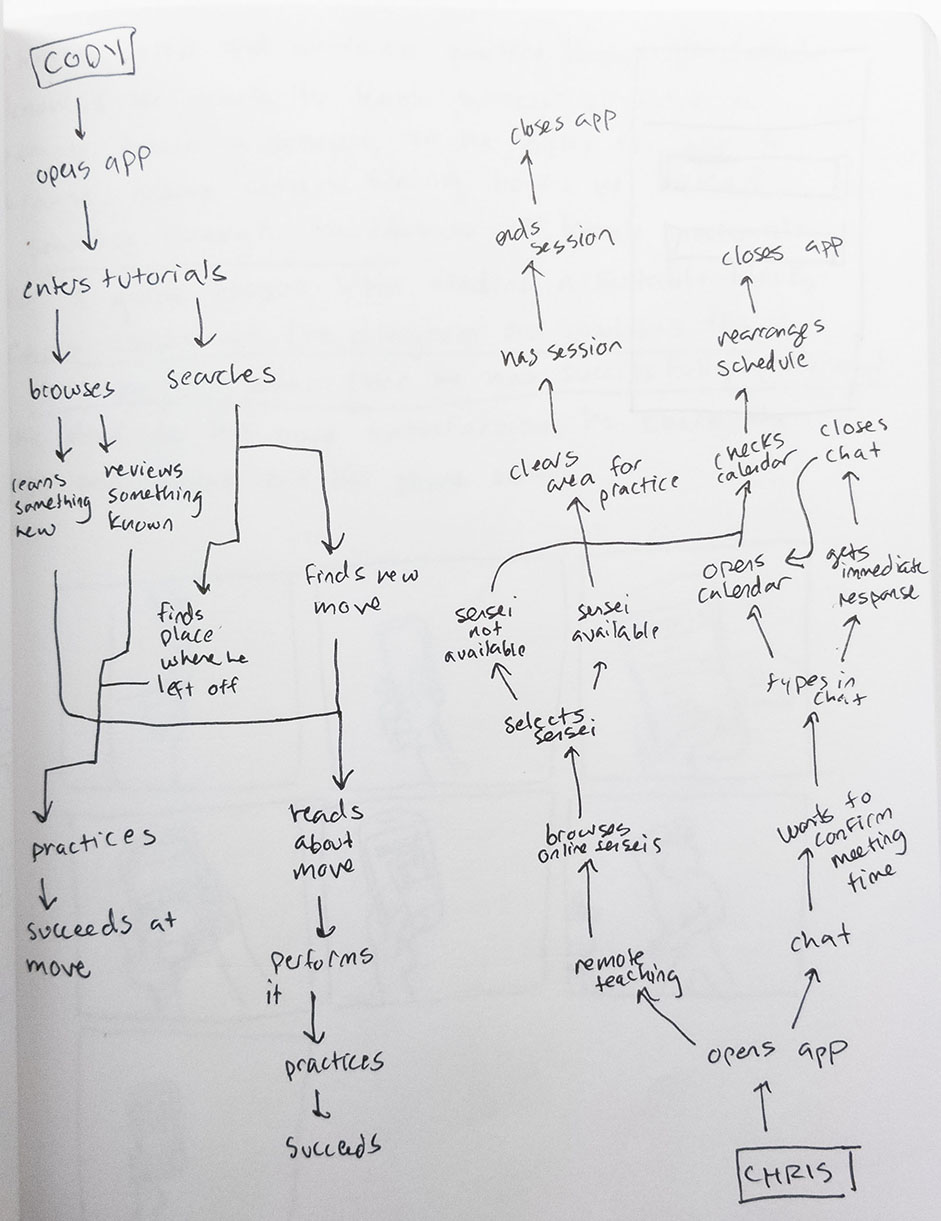 CODY
opens app
enters tutorials
browses
searches
learns
something
new
reviews
something
known
finds
place
where he
left off
finds new
move
practices
succeeds at
move
reads
about
move
performs
it
practices
Succeeds
closes app
ends
session
has session
clears
area for
practice
sensei
not
available
sensei
available
selects
sensei
browses
online senseis
remote
teaching
closes app
rearranges
schedule
checks
calendar
opens
calendar
closes
chat
gets
immediate
response
types in
chat
wants to
confirm
meeting
time
chat
opens app
CHRIS